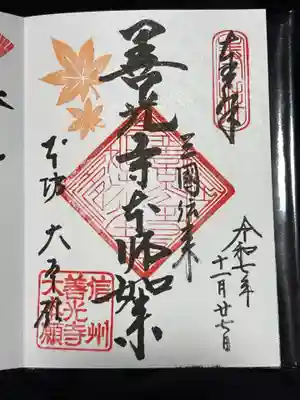 奉拝
令和七年
十一月廿七日
三國伝来
善光寺本師如来
本坊 大本願
信州
善光寺
大本願